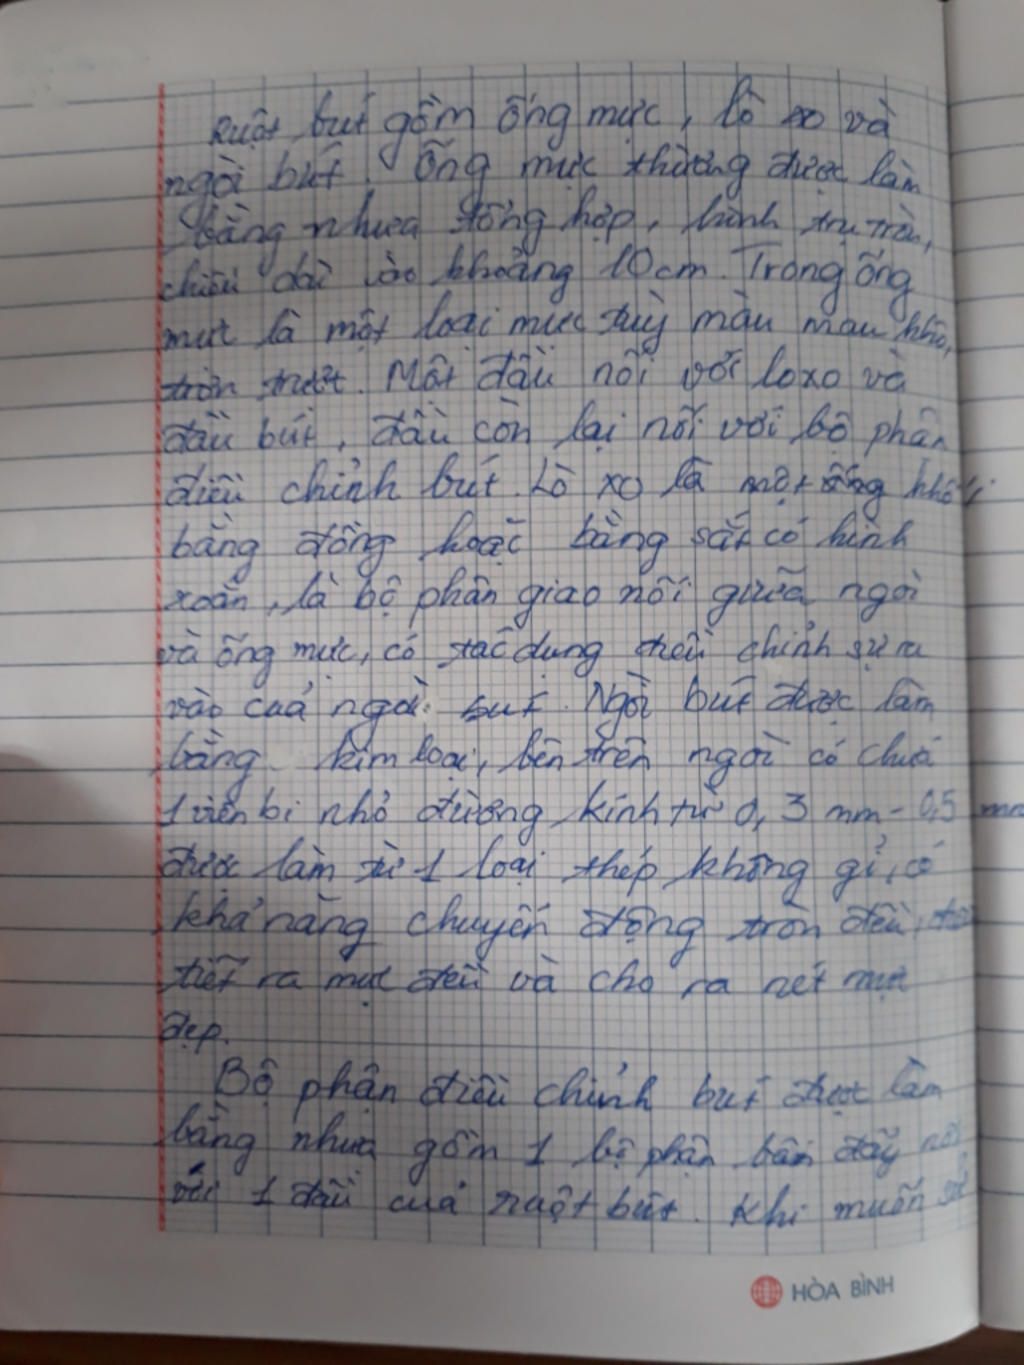 Ruột bút gồm ống mực, lò xo và
ngòi bút. Ống mực thường được làm
bằng nhựa tổng hợp, hình trụ tròn,
chiều dài vào khoảng 10cm. Trong ống
mực là một loại mực tuỳ màu mau khô,
trơn trượt. Một đầu nối với loxo và
đầu bút, đầu còn lại nối với bộ phận
điều chỉnh bút. Lò xo là một ống
bằng đồng hoặc bằng sắt có hình
xoắn, là bộ phận giao nối giữa ngòi
và ống mực, có tác dụng điều chỉnh sự ra
vào của ngòi bút. Ngòi bút được làm
bằng kim loại, bên trên ngòi có chứa
1 viên bi nhỏ đường kính từ 0,3 mm - 0,5 mm
được làm từ 1 loại thép không gỉ, có
khả năng chuyển động tròn đều,
tiết ra mực đều và cho ra nét mực
đẹp.
Bộ phận điều chỉnh bút được làm
bằng nhựa gồm 1 bộ phận bấm đẩy nối
với 1 đầu của ruột bút. Khi muốn
HÒA BÌNH